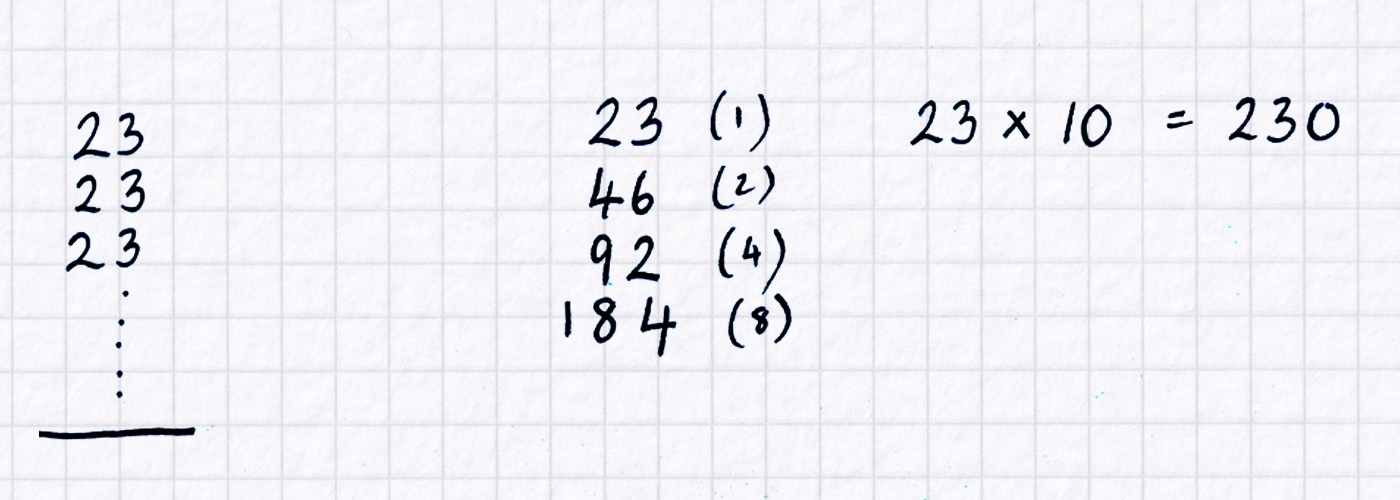 23
23
23
.
.
.
.
.
23 (1)
46 (2)
92 (4)
184 (8)
23 x 10 = 230